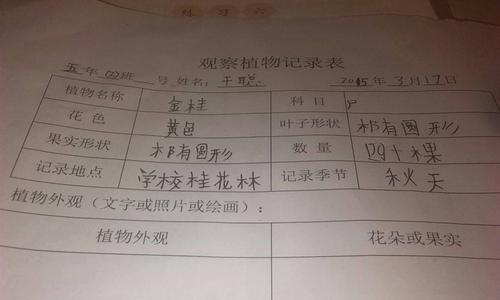 练 习 六
观察植物记录表
五年(2)班 号 姓名:王聪 2015年3月17日
植物名称 金桂 科目
花色 黄色 叶子形状 椭有圆形
果实形状 椭有圆形 数量 四十棵
记录地点 学校桂花林 记录季节 秋天
植物外观(文字或照片或绘画):
植物外观 花朵或果实